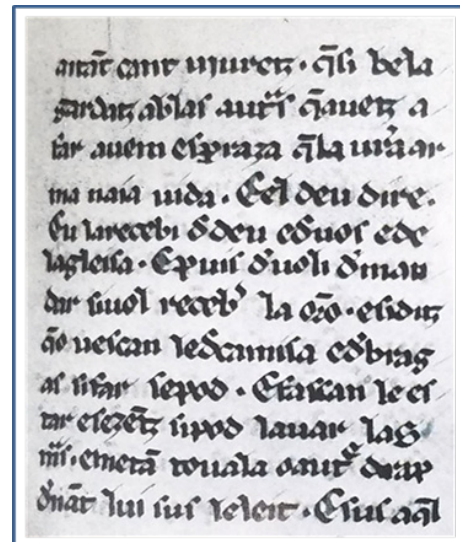 aitāt cant uiuretz · q̄ si be la
gardatz ablas autᵃs q̄ auetz a
far auem esꝑāza q̄ la ur̄a ar
ma naia uida · E el deu dire.
Eu la recebi đ deu eđ uos ede
la gleisa · E puis đuoli đ man
dar si uol recebʳ la oro͞ · esiditz
q̄o uescan leđcamisa eđbrag
as sifar sepod · E fascan le es
tar esezētz sipod lauar las
mās · emetā touala o autᵉ drap
đnāt lui sus le leit · E sus aq̄l